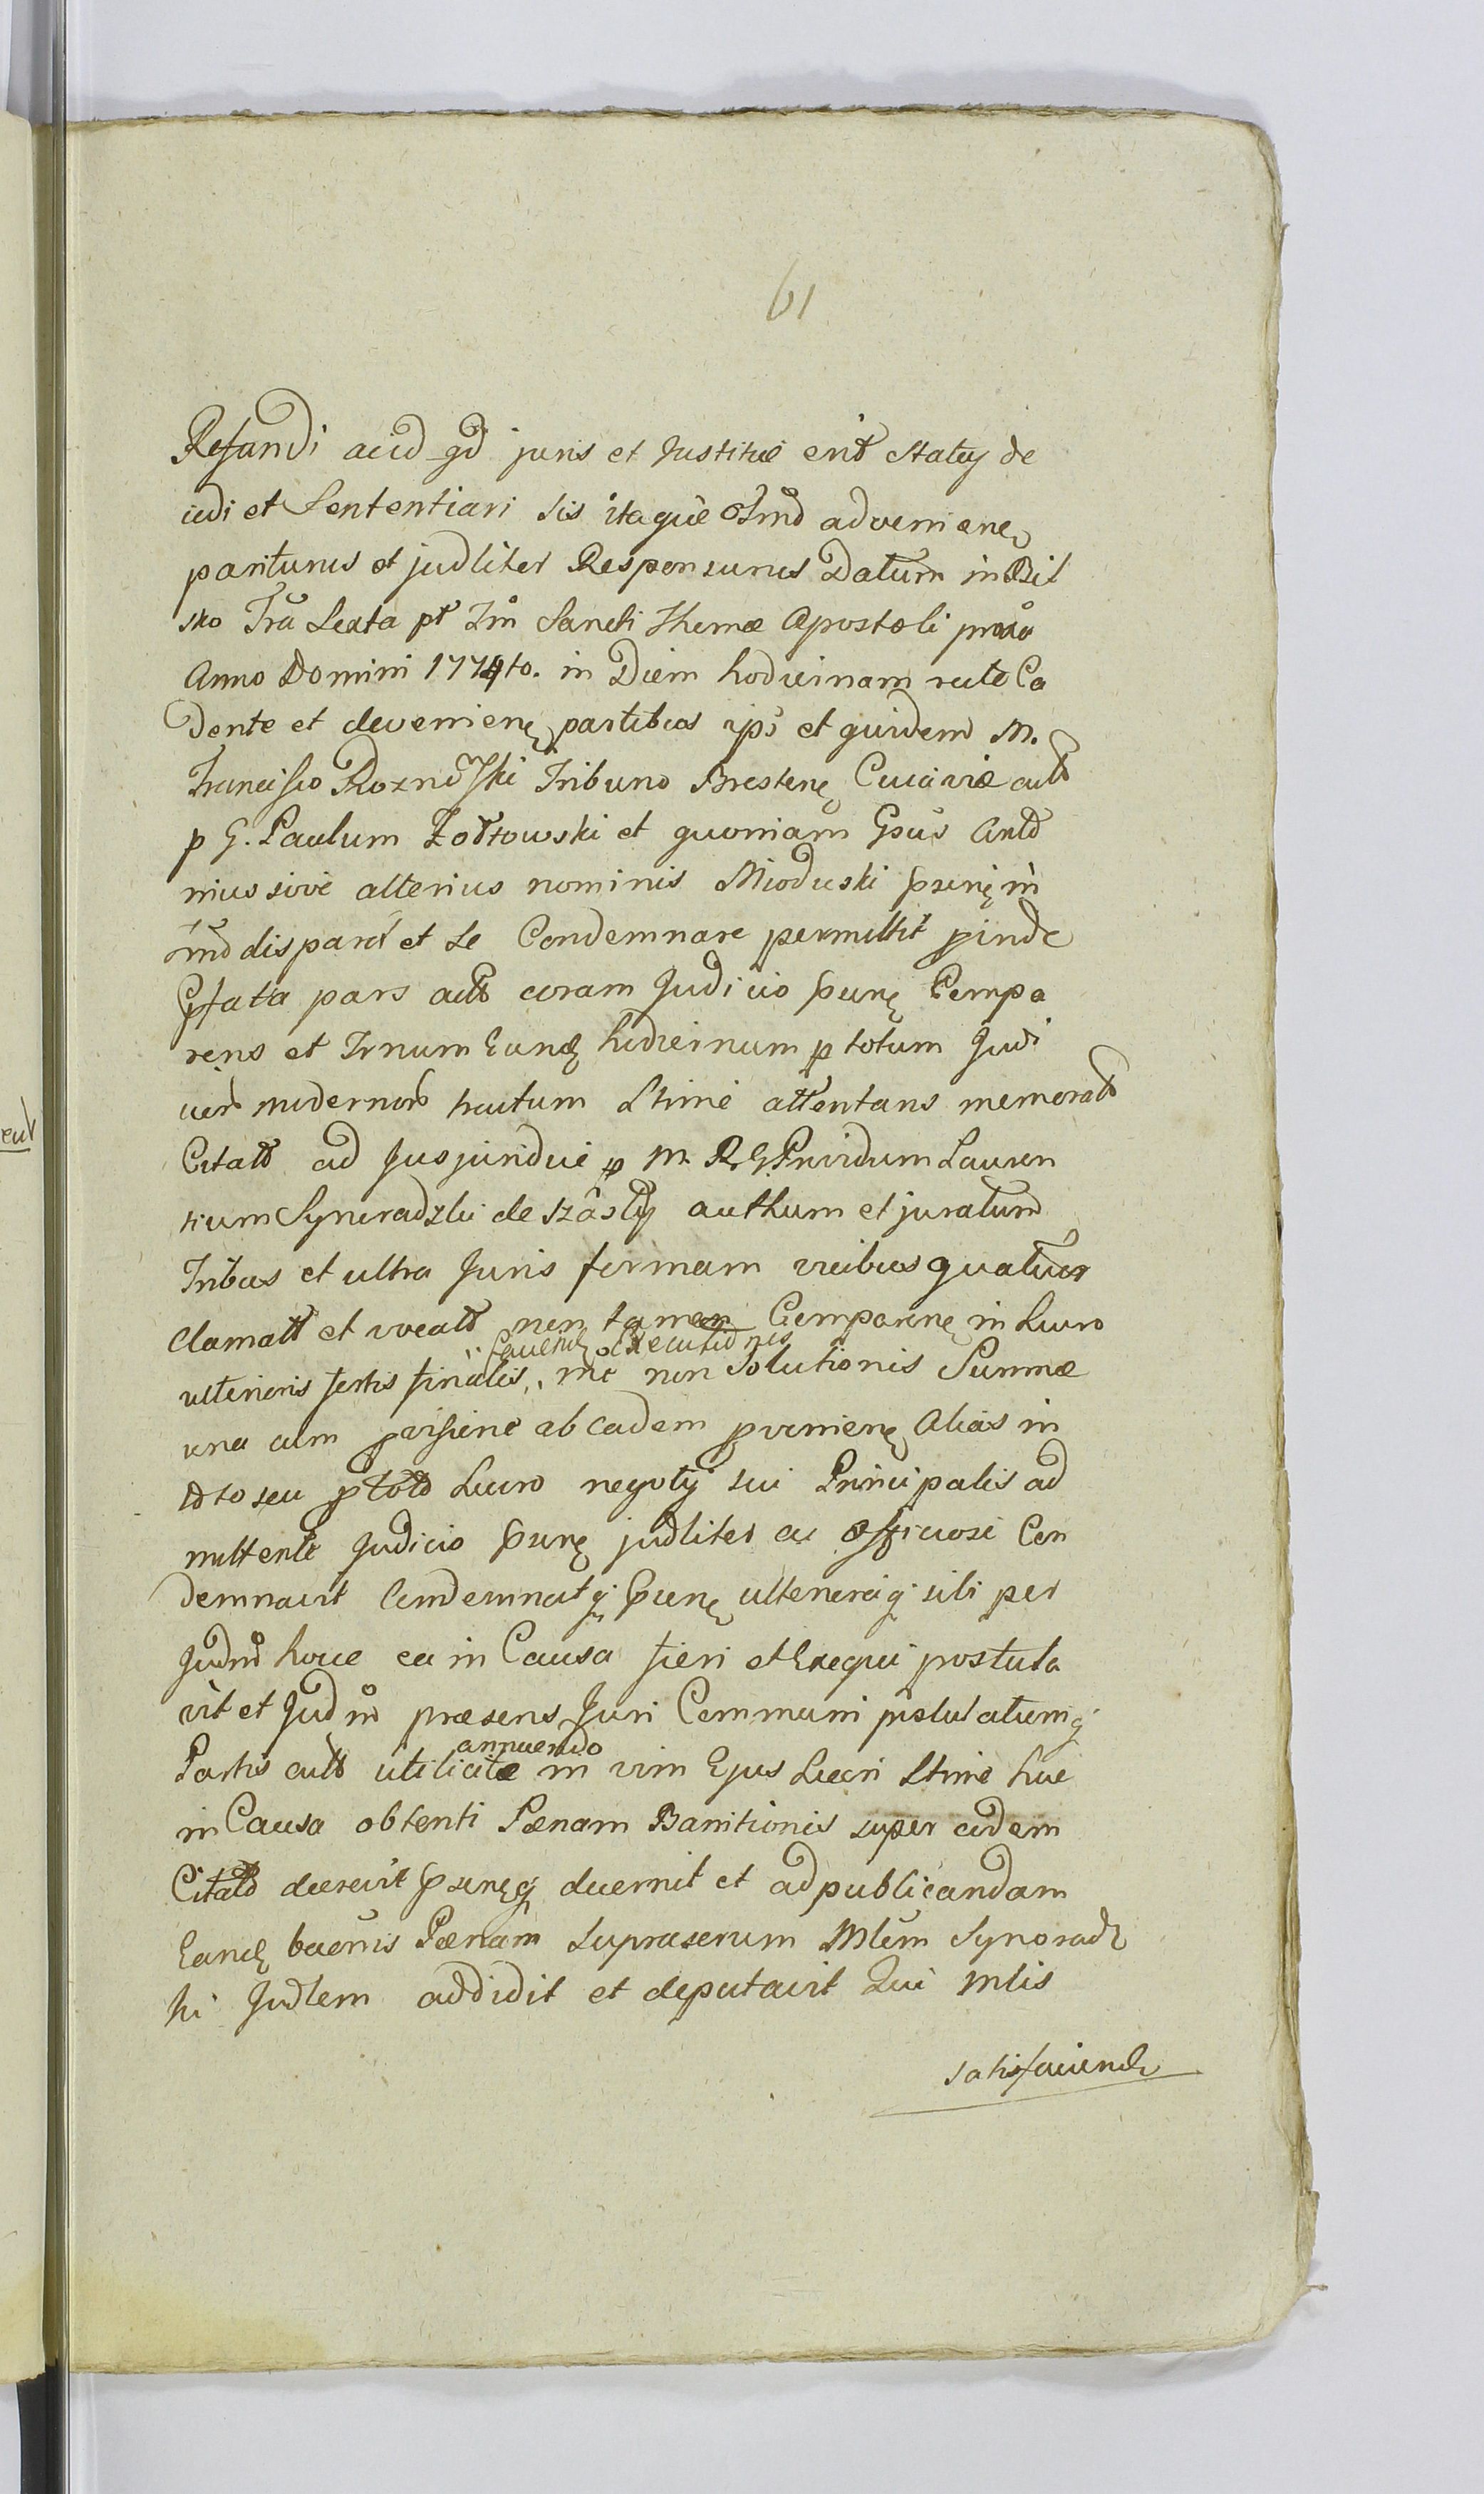 61
Refundi acid qd juris et Justitiæ erit Statuy de
cidi et Sententiari sis itaque Tmo advenienę
pariturus et judliter Responsurus Datum in Bil
sko Fria Sexta pt Fm Sancti Thomæ Apostoli proxo
Anno Domini 1774to. in Diem hodiernam recte Ca
dente et devenienę partibus ips et quidem M.
Francisco Roznoski Tribuno Brestenę Cuiaviæ actt
p G. Paulum Zoltowski et quoniam Gsus Anto
nius sive alterius nominis Mioduski psenę in
Tmo disparet et Se Condemnare permittit pinde
Pfata pars actt coram Judicio psenę Compa
rens et Trnum Eundę hodiernum p totum Judi
ciu modernu tractum Lttime attentans memoratt
Citatt ad Jus juridice p M. R. G. Providum Lauren
tium Syneradzki de authum et juratum
Tribus et ultra Juris formam vicibus quatuor
Clamatt et vocatt non tamen Comparenę in Lucro
Cavendę Executionis
ulterioris fertis finalis, nec non Solutionis Summæ
una cum pvisione ab eadem pvenienę alias in
toto seu ptoto Lucro negotij sui Principalis ad
mittente Judicio psenę judliter ac officiose Con
demnavit Condemnatq psenę ulterioraq sibi per
Judm hocce ea in Causa fieri et Exequi postula
vit et Judm præsens Juri Communi pstulationiq
annuendo
Partis actt utilicitæ in vim Ejus Lucri Lttime hac
in Causa obtenti Pænam Banitionis super eodem
Citatto decrevit psenęq decernit et ad publicandam
Eandę baenis Pænam Supraserum Mlem Synoradz
ki Judlem addidit et deputavit Qui Mlis
satisfaciendę